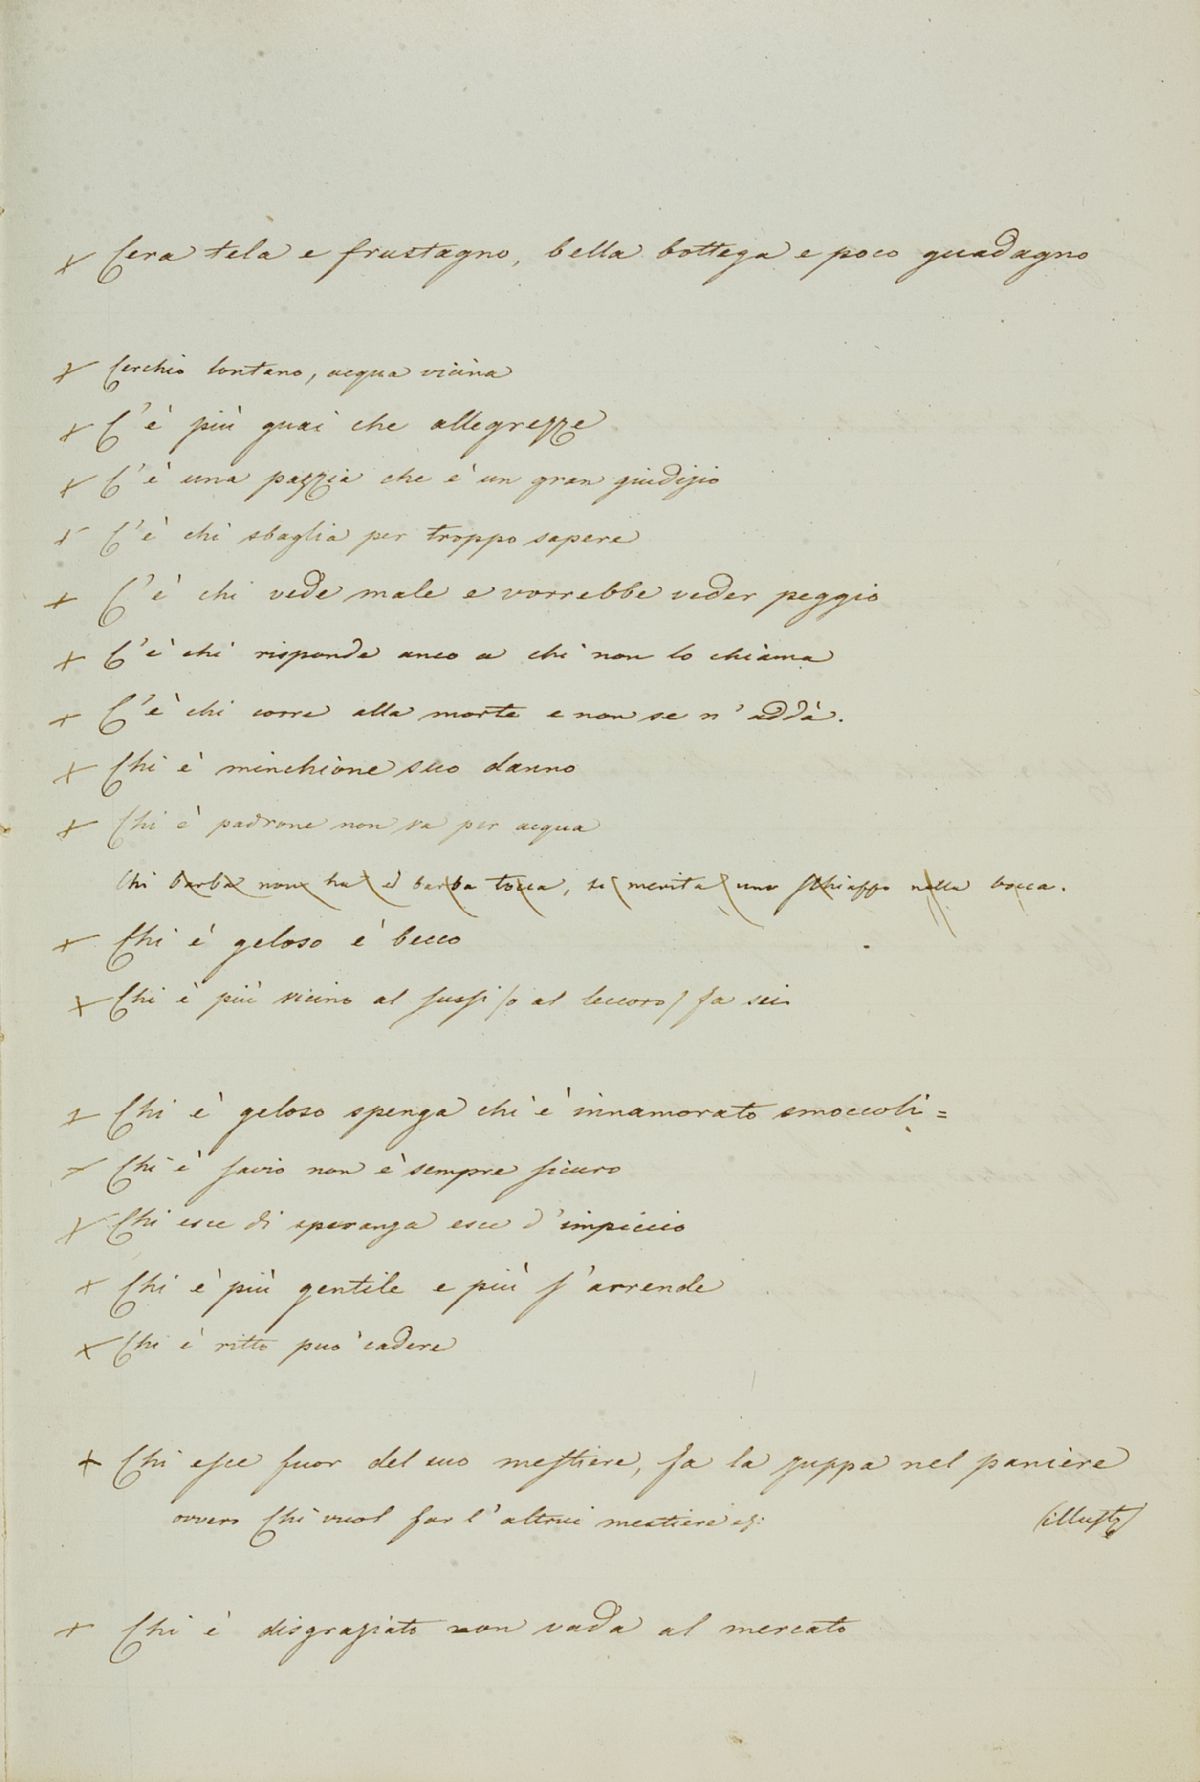 + Cera tela e frustagno, bella bottega e poco guadagno
+ Cerchio lontano, acqua vicina
+ C'è più guai che allegrezze
+ C'è una pazzia che è un gran giudizio
+ C'è chi sbaglia per troppo sapere
+ C'è chi vede male e vorrebbe veder peggio
+ C'è chi risponde anco a chi non lo chiama
+ C'è chi corre alla morte e non se n'addà.
+ Chi è minchione suo danno
+ Chi è padrone non va per acqua
Chi barba non ha e barba tocca, si merita uno schiaffo nella bocca.
+ Chi è geloso è becco
+ Chi è più vicino al sussi (o al leccoro) fa sei
+ Chi è geloso spenga chi è innamorato smoccoli =
+ Chi è savio non è sempre sicuro
+ Chi esce di speranza esce d'impiccio
+ Chi è più gentile e più s'arrende
+ Chi è ritto può cadere
+ Chi esce fuor del suo mestiere, fa la zuppa nel paniere
ovvero Chi vuol far l'altrui mestiere
+ Chi è disgraziato non vada al mercato